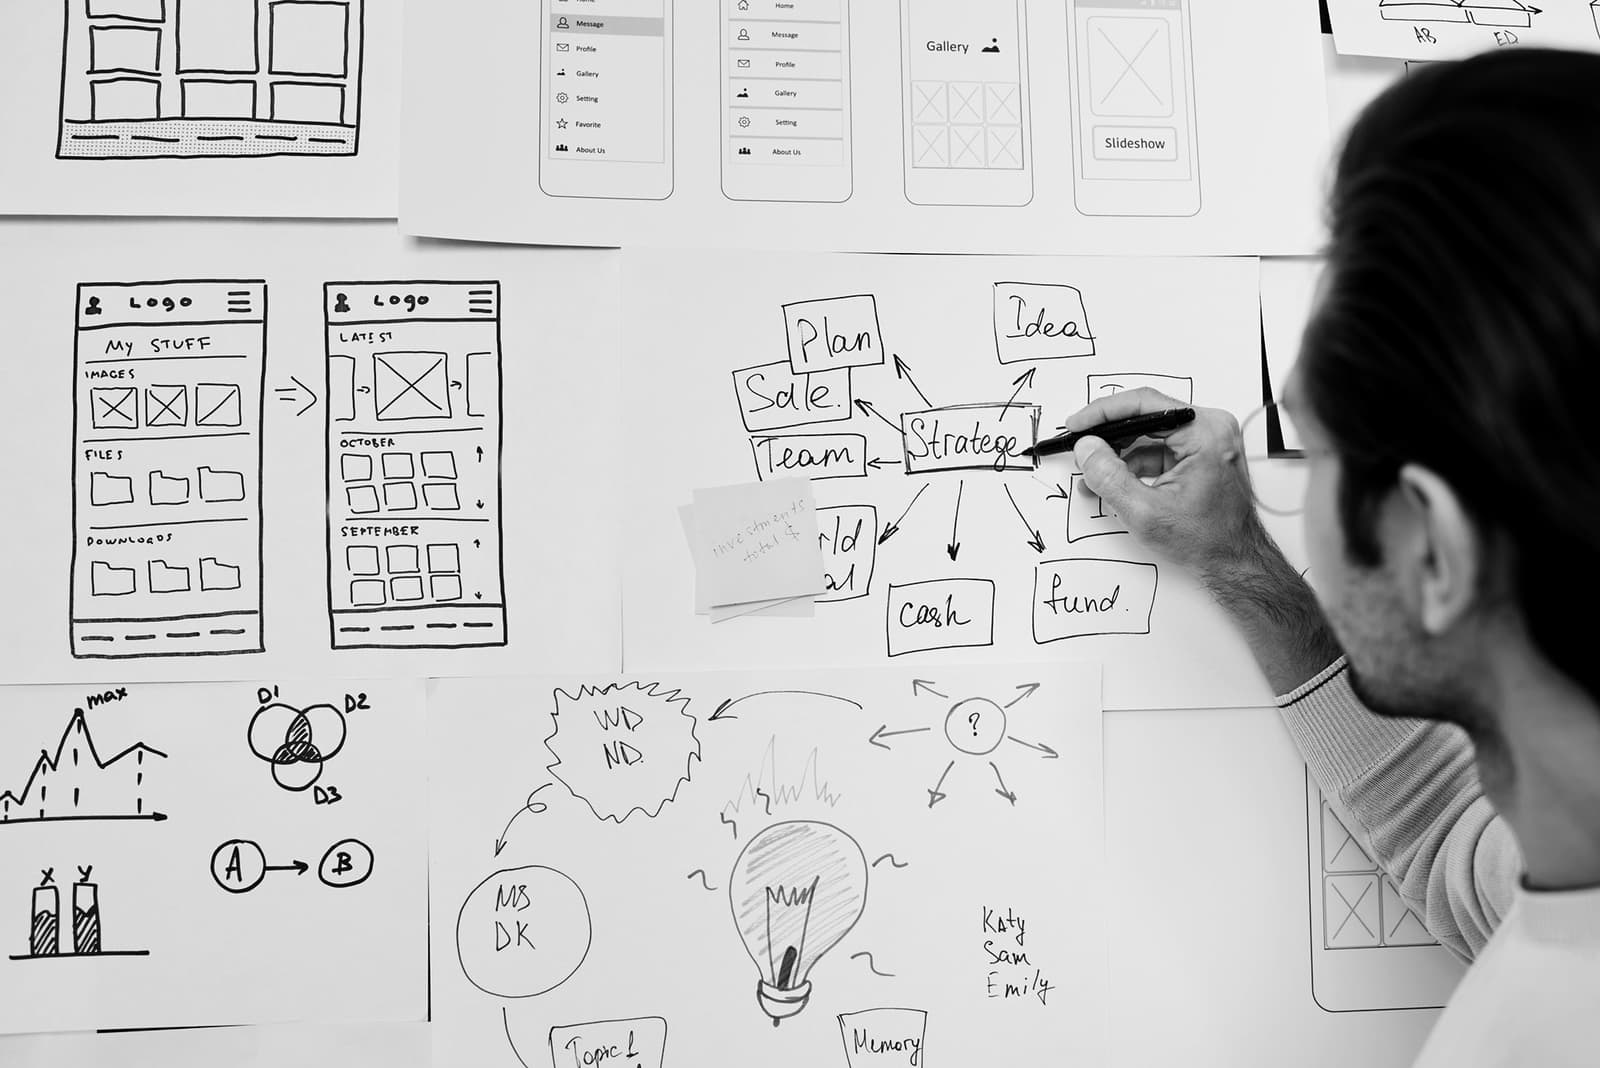 Message
Profile
Gallery
Setting
Favorite
About Us
Home
Message
Profile
Gallery
Setting
About Us
Gallery
Slideshow
AB
ED
Logo
MY STUFF
IMAGES
FILES
DOWNLOADS
Logo
LATEST
OCTOBER
SEPTEMBER
Plan
Idea
Sale.
Stratege
Team
investments
total $
cash
fund.
max
D1
D2
D3
A
B
X
Y
WD
ND.
?
MB
DK
Katy
Sam
Emily
Topic 1
Memory